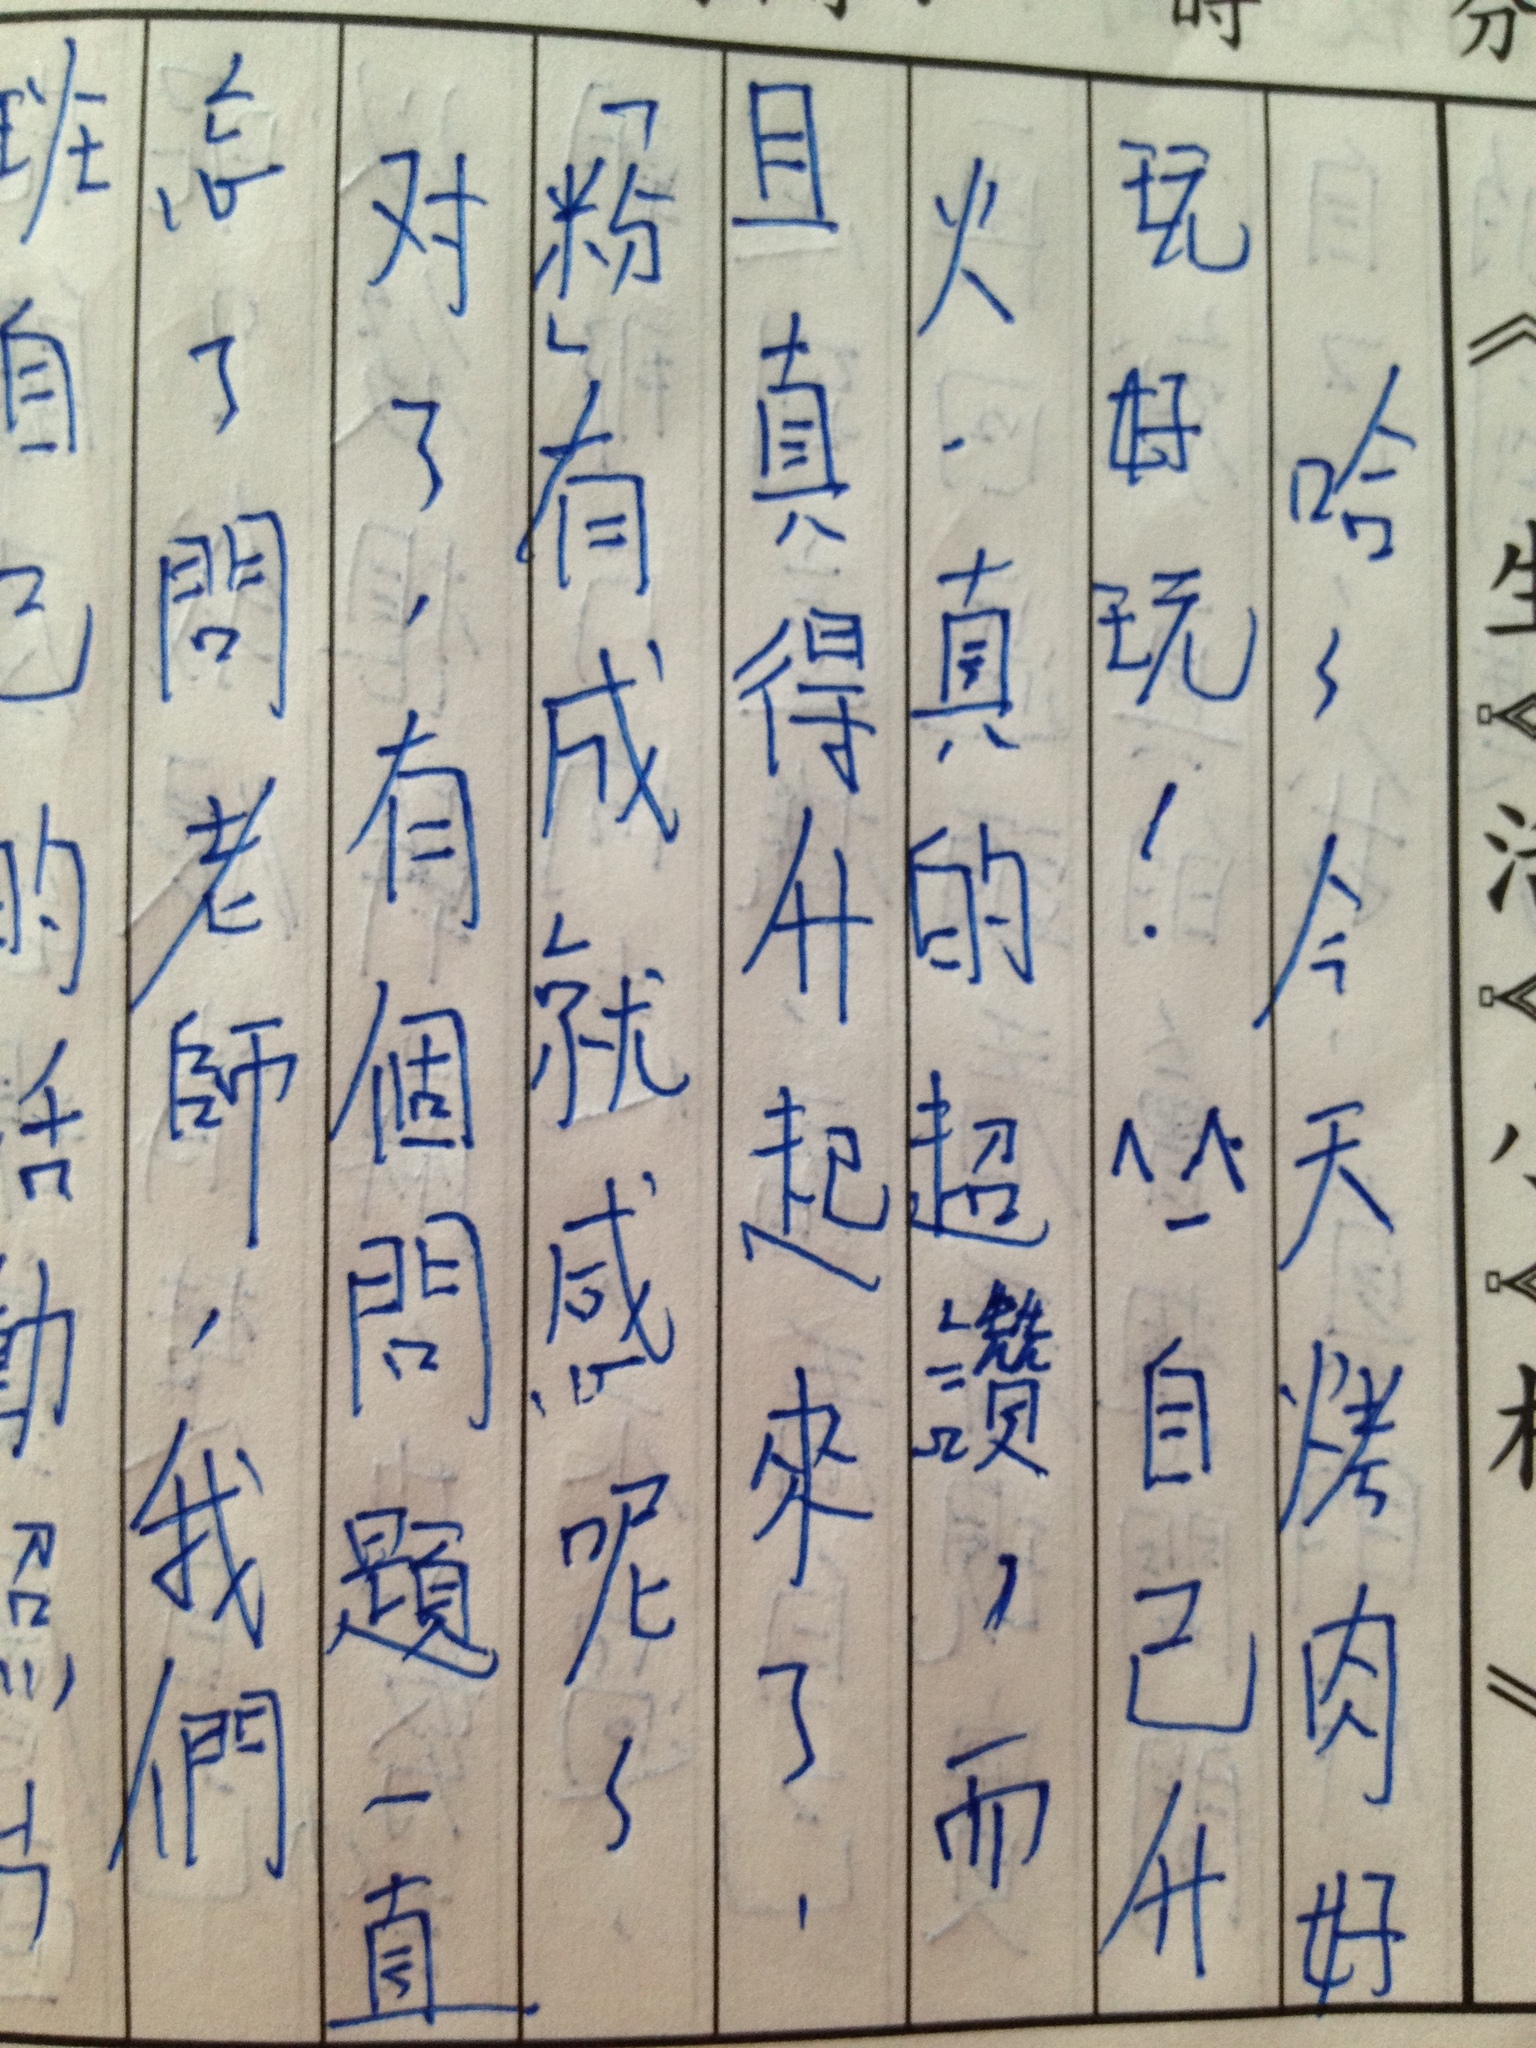 時
分
《生活
哈~今天烤肉好
玩好玩！^_^自己升
火.真的超讚，而
且真得升起來了.
「粉」有成就感呢~
对了，有個問題一直
忘了問老師，我們
班自己的活動照